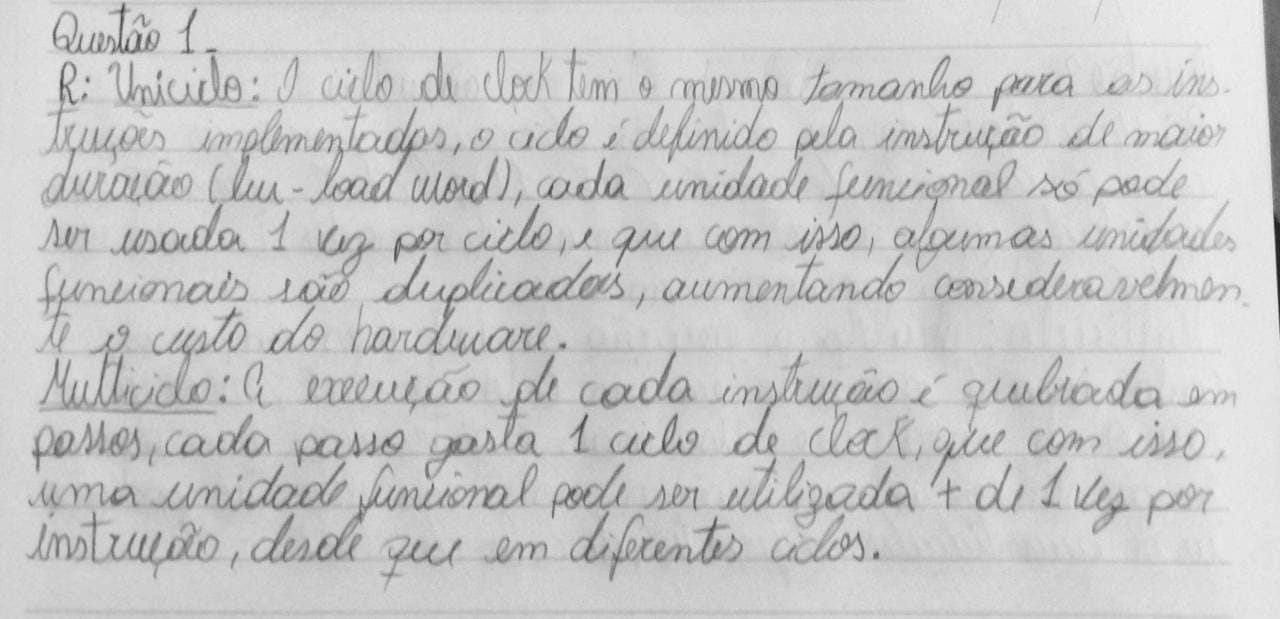 Questão 1 -
R: Uniciclo: O ciclo de clock tem o mesmo tamanho para as ins-
truções implementadas, o ciclo é definido pela instrução de maior
duração (lw - load word), cada unidade funcional só pode
ser usada 1 vez por ciclo, e que com isso, algumas unidades
funcionais são duplicadas, aumentando consideravelmen-
te o custo do hardware.
Multiciclo: A execução de cada instrução é quebrada em
passos, cada passo gasta 1 ciclo de clock, que com isso,
uma unidade funcional pode ser utilizada + de 1 vez por
instrução, desde que em diferentes ciclos.